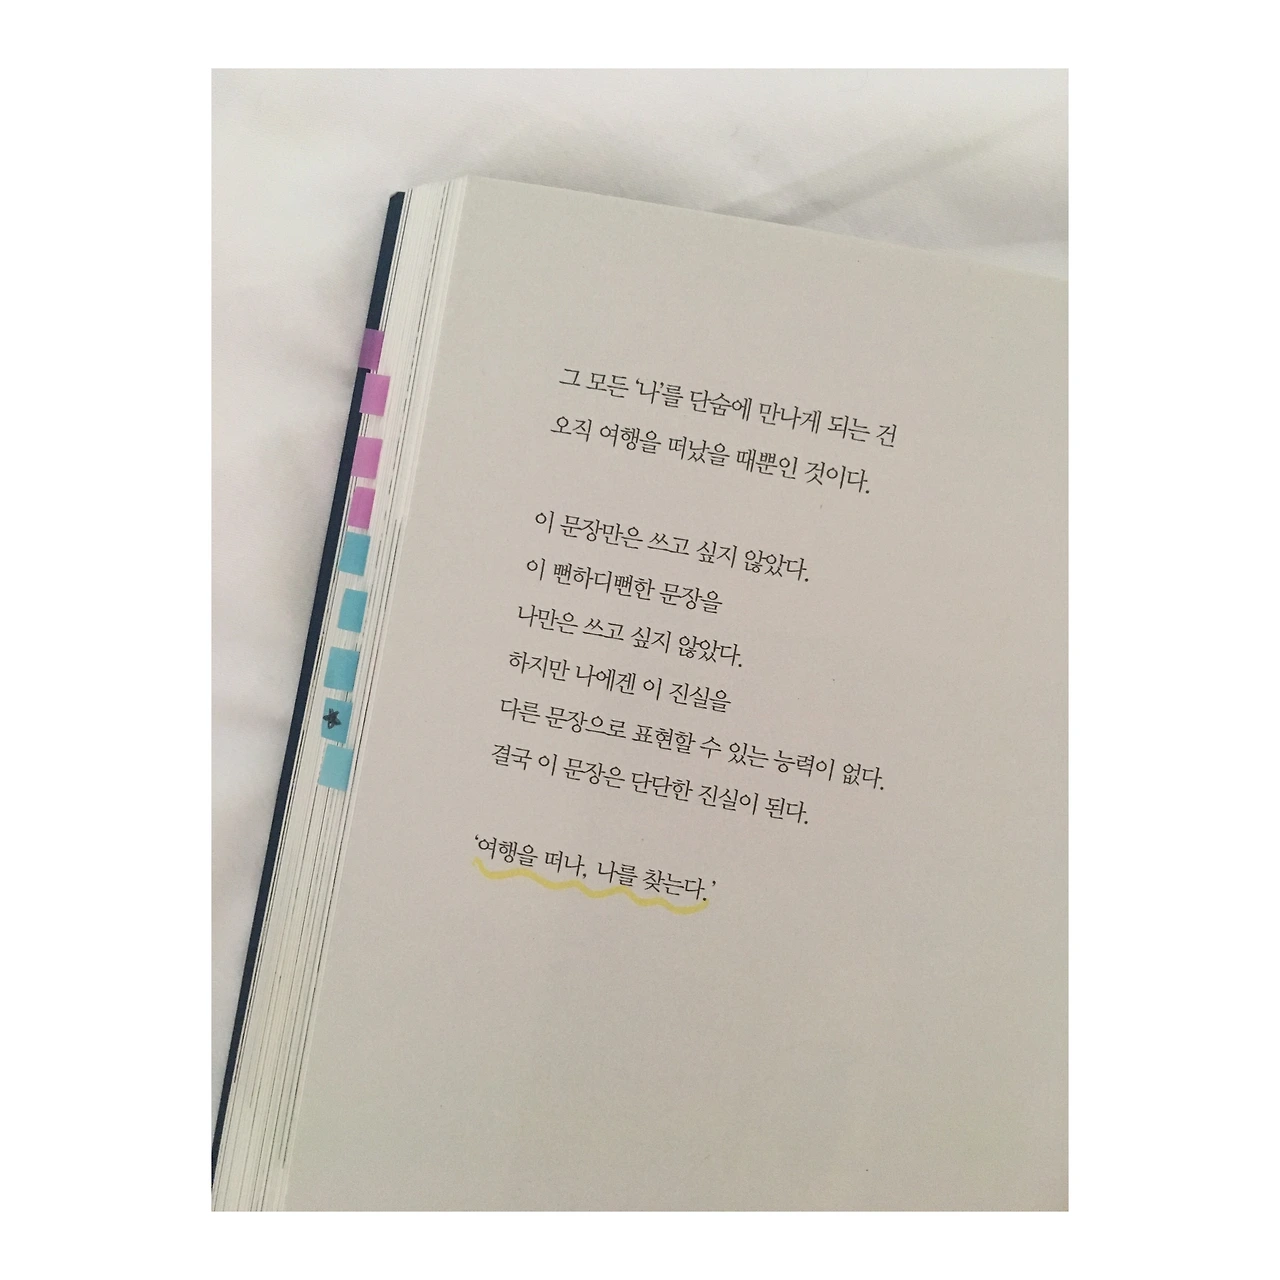 그 모든 ‘나’를 단숨에 만나게 되는 건
오직 여행을 떠났을 때뿐인 것이다.
이 문장만은 쓰고 싶지 않았다.
이 뻔하디뻔한 문장을
나만은 쓰고 싶지 않았다.
하지만 나에겐 이 진실을
다른 문장으로 표현할 수 있는 능력이 없다.
결국 이 문장은 단단한 진실이 된다.
‘여행을 떠나, 나를 찾는다.’